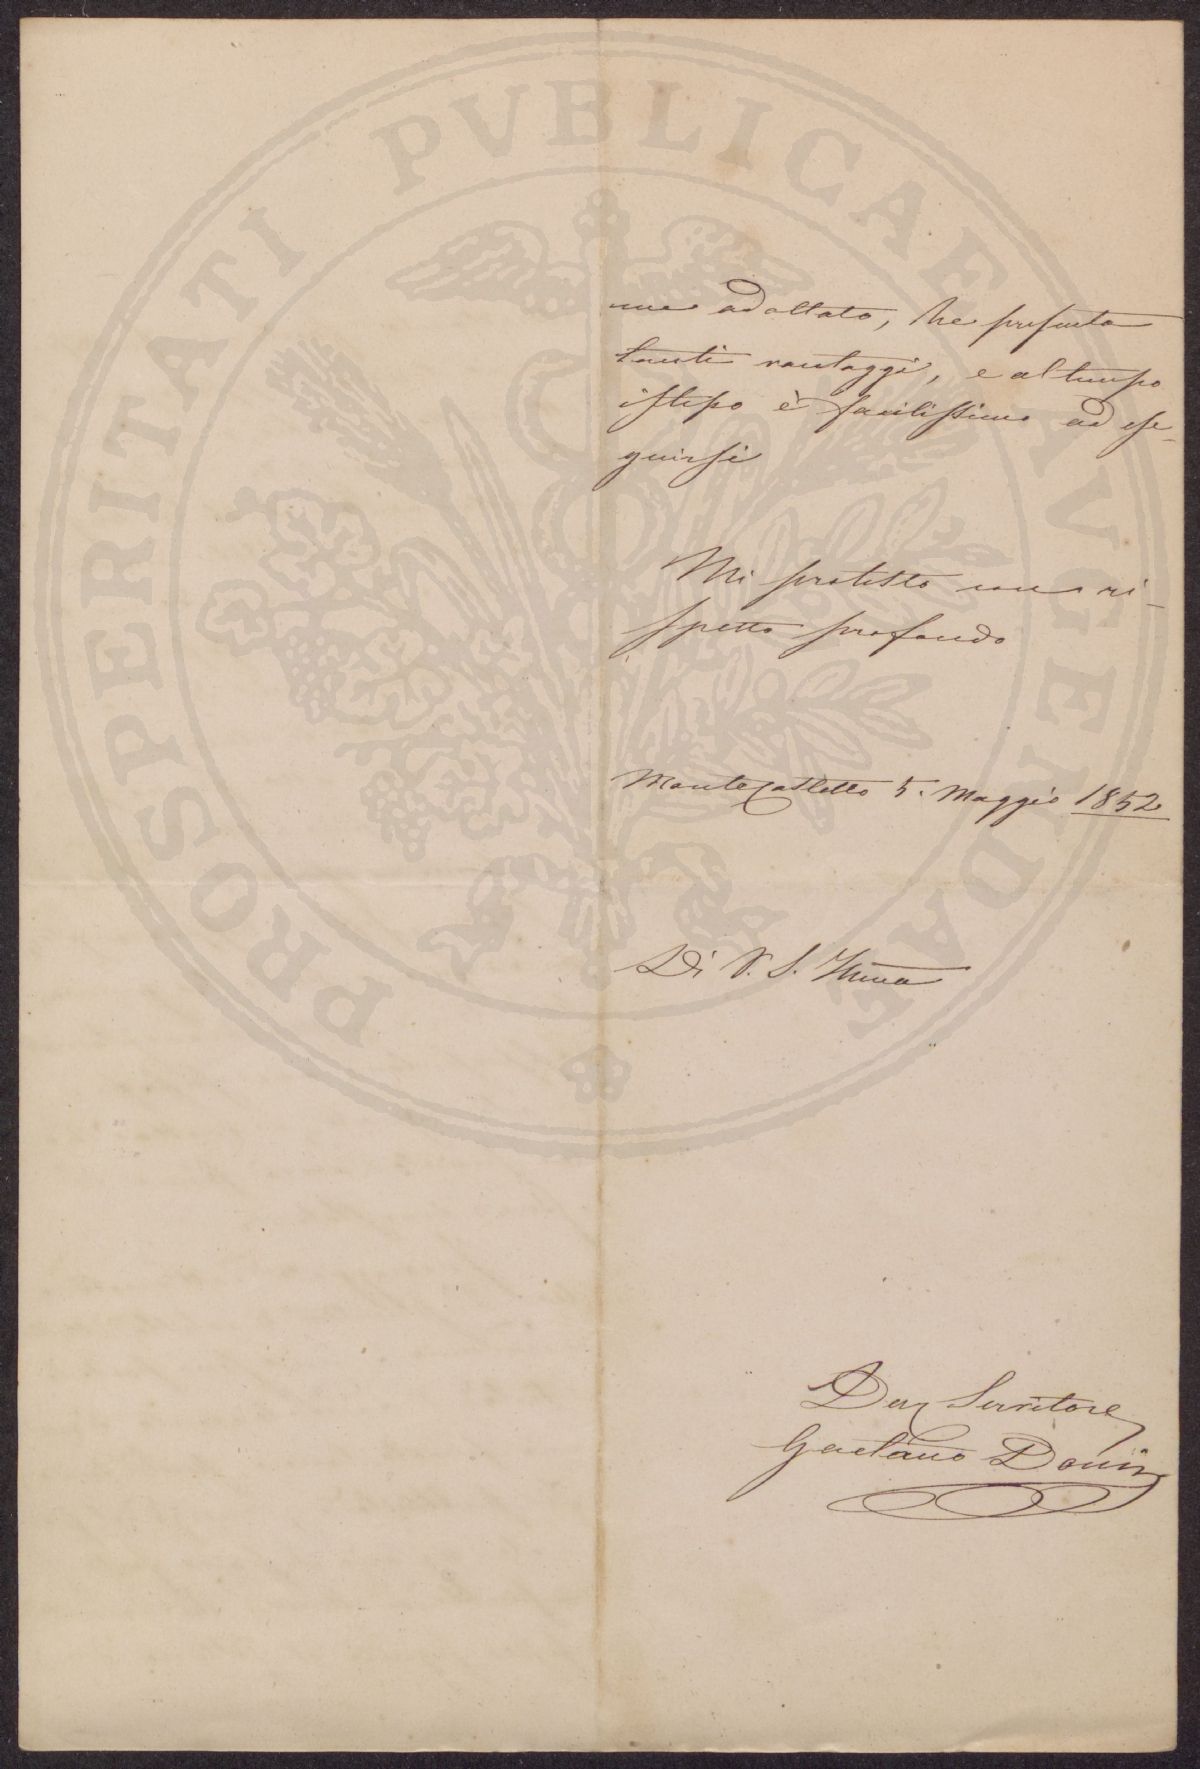 PROSPERITATI PVBLICAE AVGENDAE
me adottato, che presenta
tanti vantaggi, e al tempo
istesso è facilissimo ad ese-
guirsi
Mi protesto con ri-
spetto profondo
Montecastello 5. Maggio 1852
Di V. S. Illma
Servitore
Gaetano